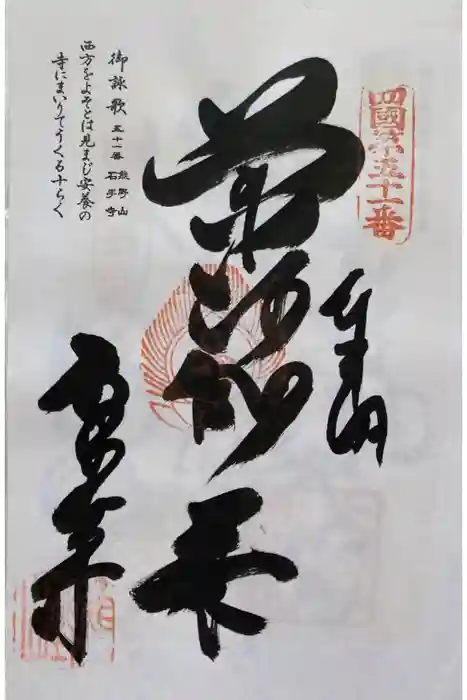 四國第五十一番
奉拝
薬師如来
石手寺
御詠歌 五十一番 熊野山
石手寺
西方をよそとは見まじ安養の
寺にまいりてうくる十らく